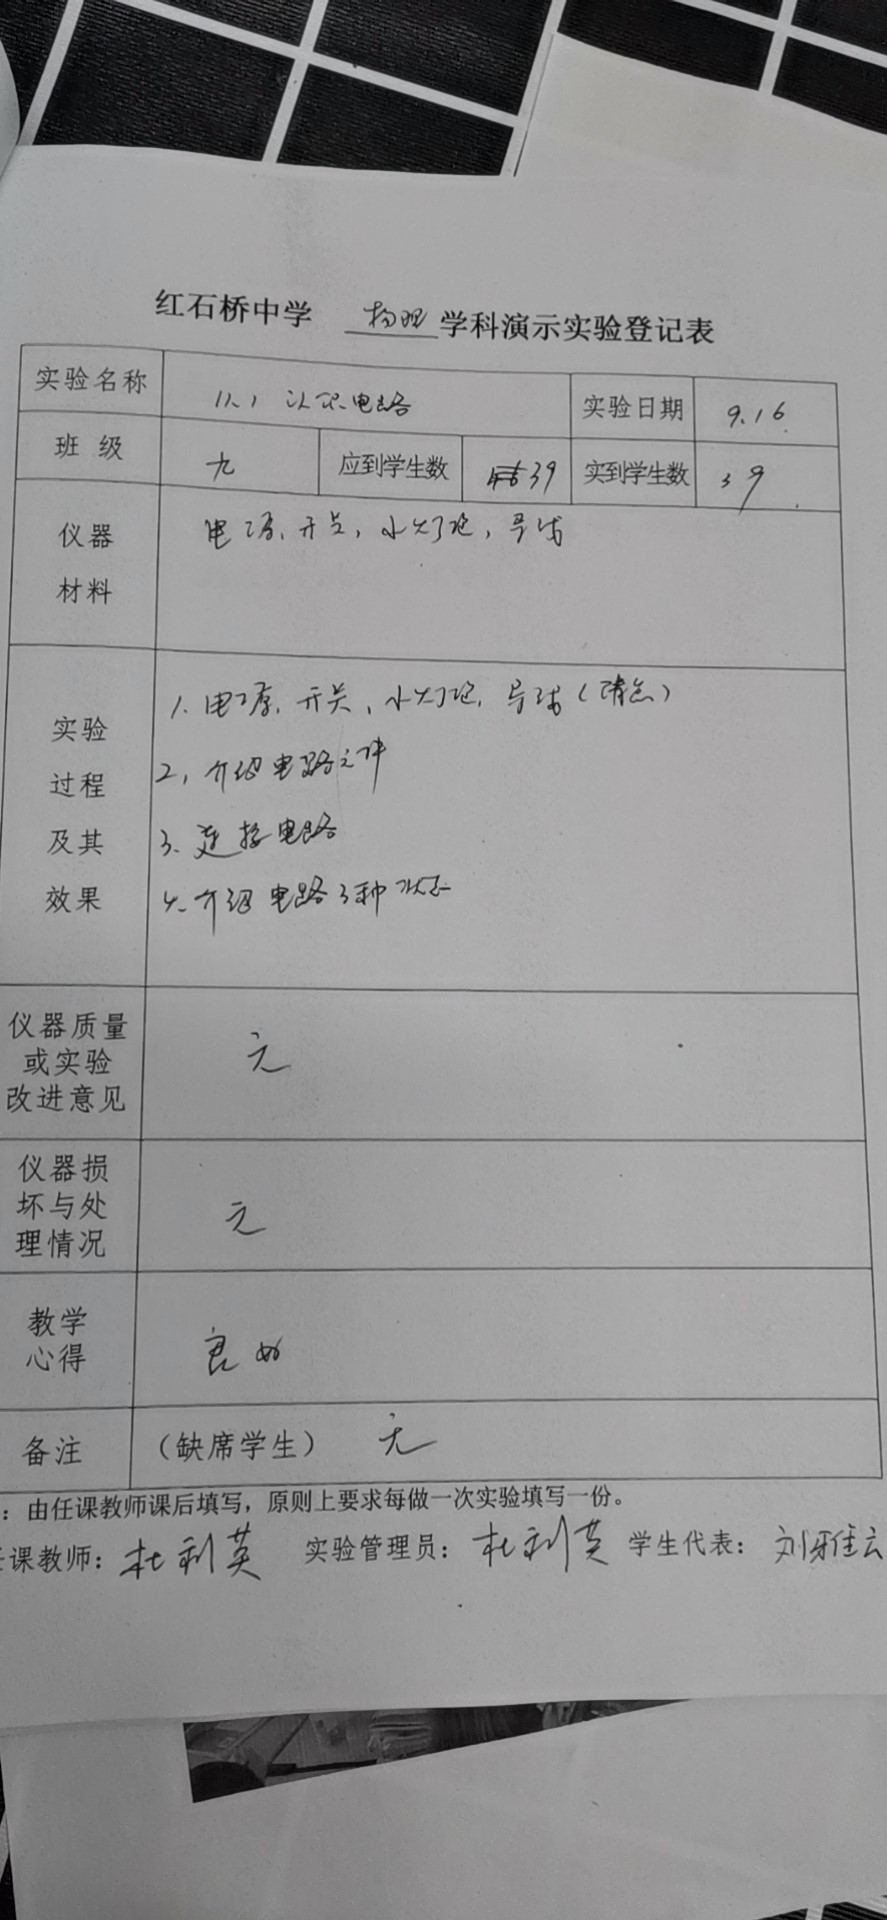 红石桥中学 物理 学科演示实验登记表
实验名称 11.1 认识电路 实验日期 9.16
班 级 九 应到学生数 39 实到学生数 39
仪器 材料 电源、开关，小灯泡，导线
实验 过程 及其 效果
1. 电源、开关，小灯泡，导线
2、介绍电路元件
3、连接电路
4、介绍电路3种状态
仪器质量
或实验
改进意见 无
仪器损
坏与处
理情况 无
教学
心得 良好
备注 （缺席学生） 无
：由任课教师课后填写，原则上要求每做一次实验填写一份。
任课教师：杜利英 实验管理员：杜利英 学生代表：刘雅云